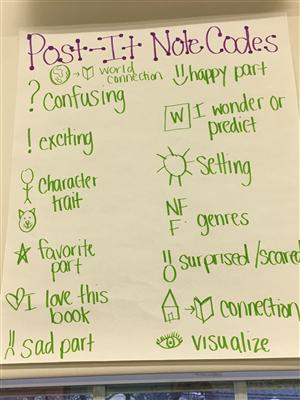 Post-It Note Codes
world connection
happy part
? confusing
W I wonder or predict
! exciting
setting
character trait
NF
F genres
favorite part
surprised/scared
I love this book
connection
sad part
visualize